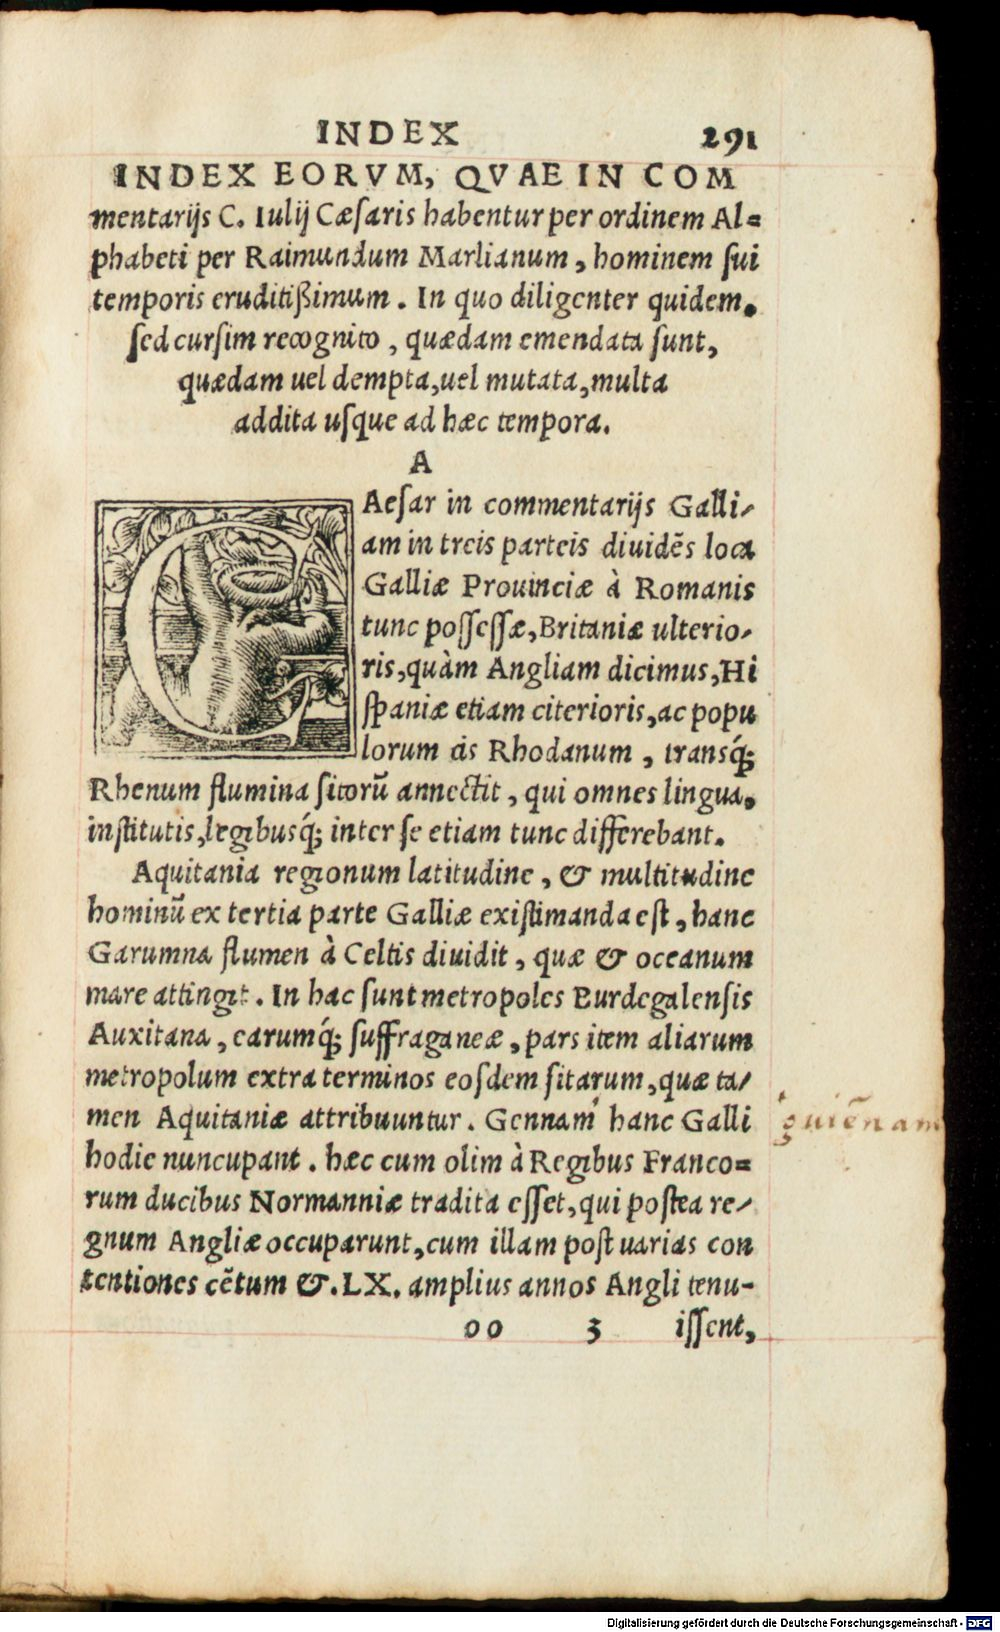 INDEX 291
INDEX EORVM, QVAE IN COM
mentarijs C. Iulij Cæsaris habentur per ordinem Al=
phabeti per Raimundum Marlianum, hominem sui
temporis eruditißimum. In quo diligenter quidem,
sed cursim recognito, quædam emendata sunt,
quædam uel dempta, uel mutata, multa
addita usque ad hæc tempora.
A
CAesar in commentarijs Galli-
am in treis parteis diuidēs loca
Galliæ Prouinciæ à Romanis
tunc possessæ, Britaniæ ulterio-
ris, quàm Angliam dicimus, Hi
spaniæ etiam citerioris, ac popu
lorum cis Rhodanum, transq́;
Rhenum flumina sitorū annectit, qui omnes lingua,
institutis, legibusq́; inter se etiam tunc differebant.
Aquitania regionum latitudine, & multitudine
hominū ex tertia parte Galliæ existimanda est, hanc
Garumna flumen à Celtis diuidit, quæ & oceanum
mare attingit. In hac sunt metropoles Burdegalensis
Auxitana, earumq́; suffraganeæ, pars item aliarum
metropolum extra terminos eosdem sitarum, quæ ta-
men Aquitaniæ attribuuntur. Gennam hanc Galli
guiēnam
hodie nuncupant. hæc cum olim à Regibus Franco=
rum ducibus Normanniæ tradita esset, qui postea re-
gnum Angliæ occuparunt, cum illam post uarias con
tentiones cētum &. LX. amplius annos Angli tenu-
oo 3 issent,
Digitalisierung gefördert durch die Deutsche Forschungsgemeinschaft - DFG